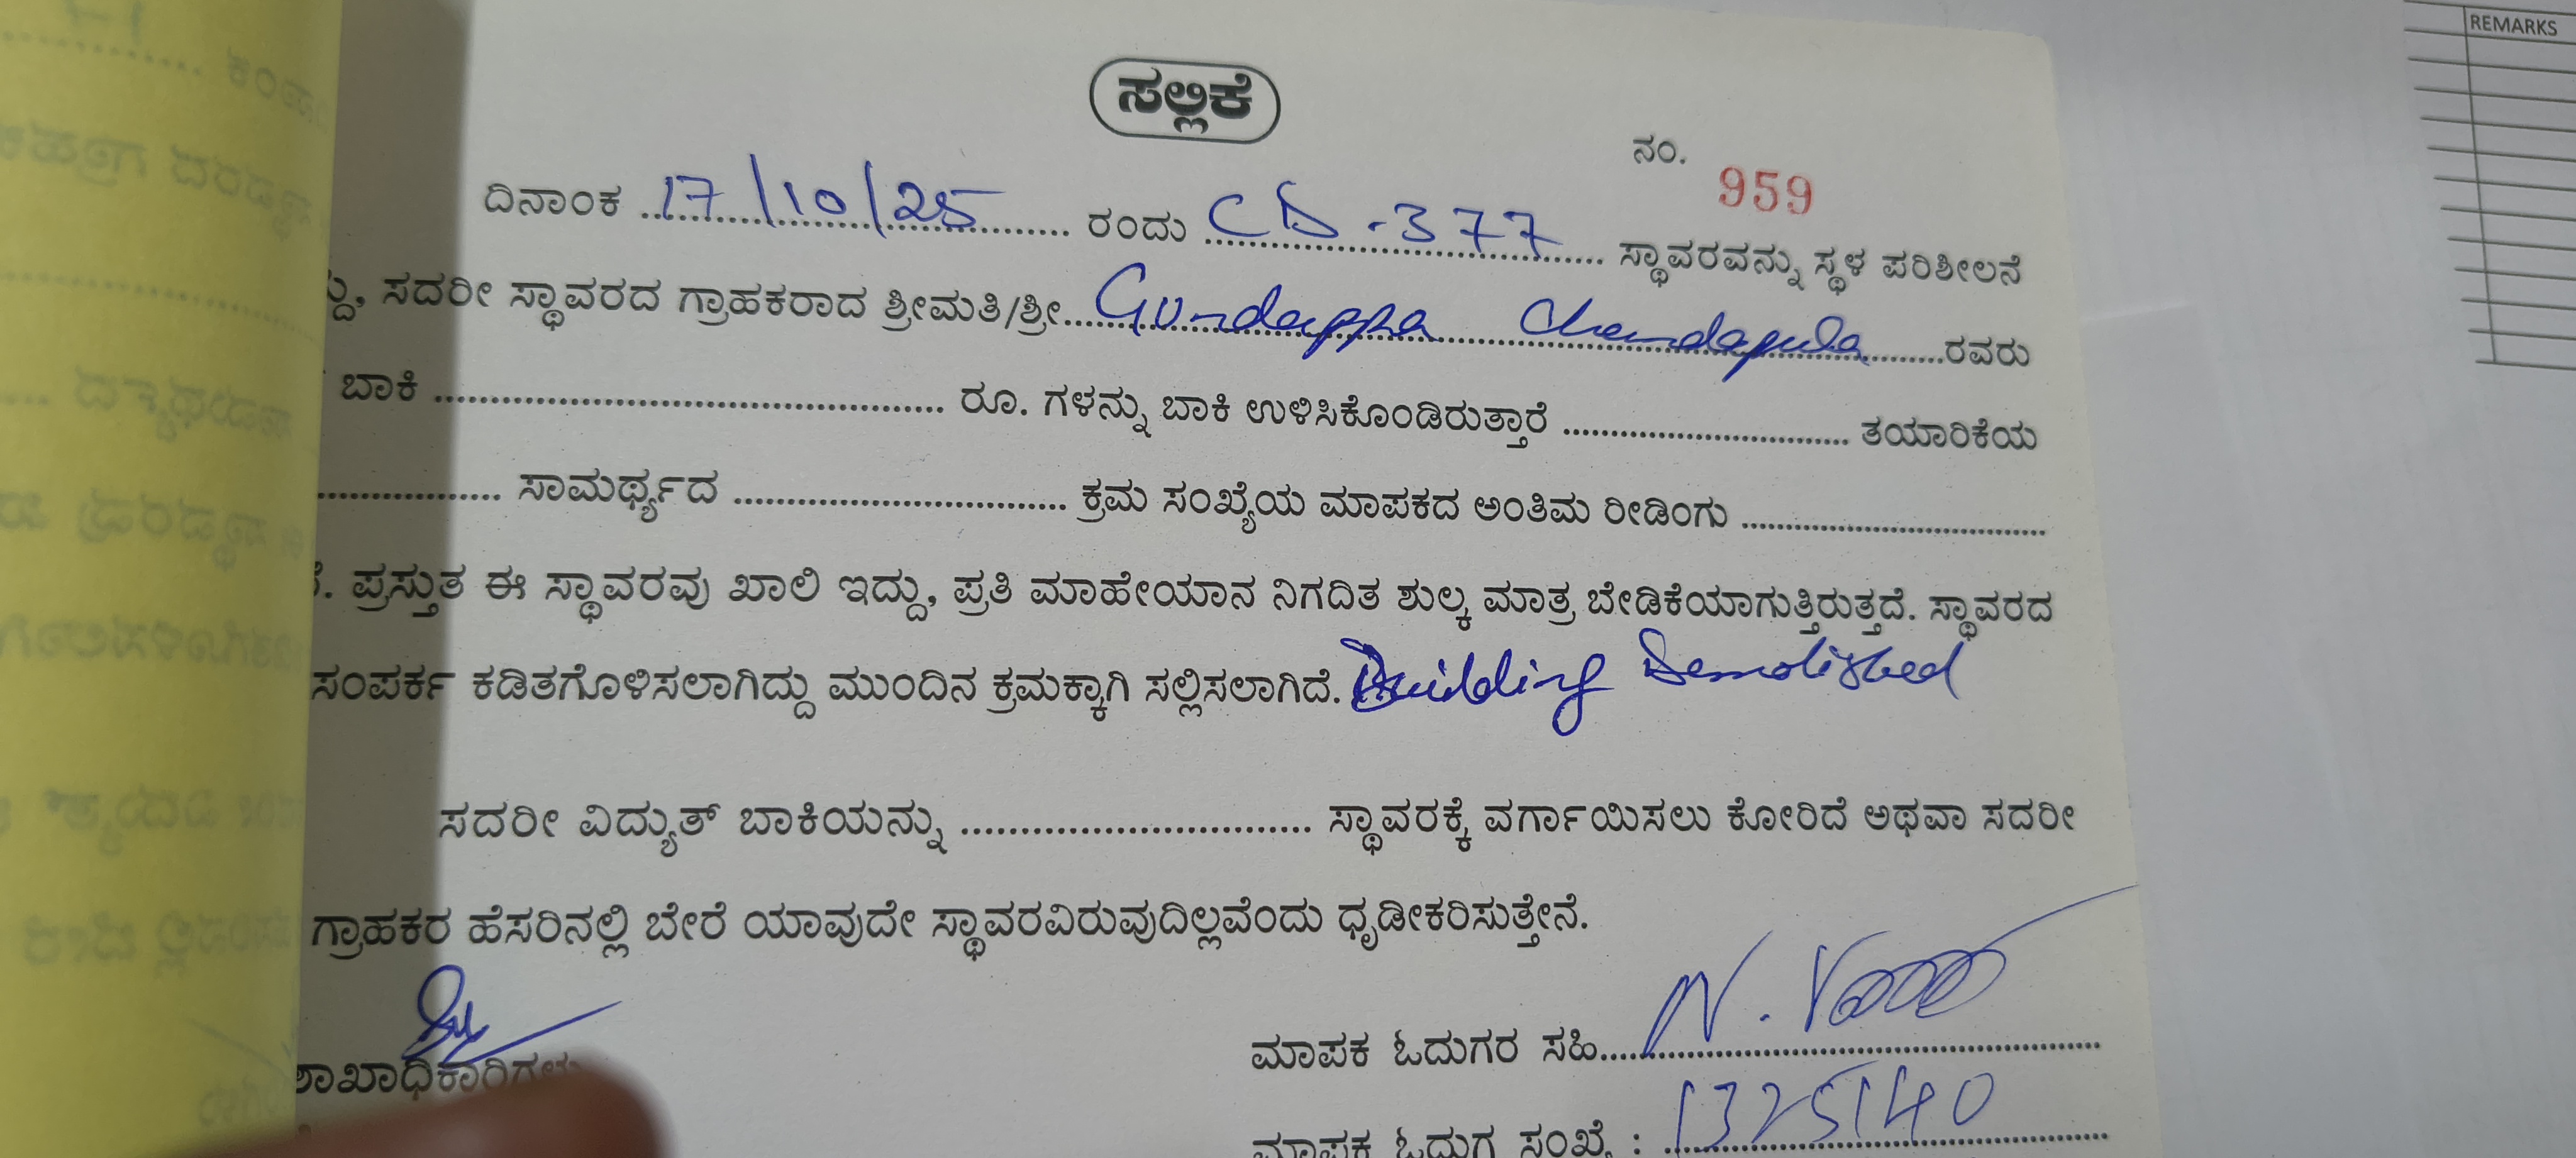 REMARKS
ಸಲ್ಲಿಕೆ
ನಂ. 959
ದಿನಾಂಕ 17/10/25 ರಂದು CD-377 ಸ್ಥಾವರವನ್ನು ಸ್ಥಳ ಪರಿಶೀಲನೆ
ಸದರೀ ಸ್ಥಾವರದ ಗ್ರಾಹಕರಾದ ಶ್ರೀಮತಿ/ಶ್ರೀ Gundappa ರವರು
ಬಾಕಿ ........ ರೂ. ಗಳನ್ನು ಬಾಕಿ ಉಳಿಸಿಕೊಂಡಿರುತ್ತಾರೆ ........ ತಯಾರಿಕೆಯ
........ ಸಾಮರ್ಥ್ಯದ ........ ಕ್ರಮ ಸಂಖ್ಯೆಯ ಮಾಪಕದ ಅಂತಿಮ ರೀಡಿಂಗು ........
ಪ್ರಸ್ತುತ ಈ ಸ್ಥಾವರವು ಖಾಲಿ ಇದ್ದು, ಪ್ರತಿ ಮಾಹೇಯಾನ ನಿಗದಿತ ಶುಲ್ಕ ಮಾತ್ರ ಬೇಡಿಕೆಯಾಗುತ್ತಿರುತ್ತದೆ. ಸ್ಥಾವರದ
ಸಂಪರ್ಕ ಕಡಿತಗೊಳಿಸಲಾಗಿದ್ದು ಮುಂದಿನ ಕ್ರಮಕ್ಕಾಗಿ ಸಲ್ಲಿಸಲಾಗಿದೆ. Building Demolished
ಸದರೀ ವಿದ್ಯುತ್ ಬಾಕಿಯನ್ನು ........ ಸ್ಥಾವರಕ್ಕೆ ವರ್ಗಾಯಿಸಲು ಕೋರಿದೆ ಅಥವಾ ಸದರೀ
ಗ್ರಾಹಕರ ಹೆಸರಿನಲ್ಲಿ ಬೇರೆ ಯಾವುದೇ ಸ್ಥಾವರವಿರುವುದಿಲ್ಲವೆಂದು ಧೃಡೀಕರಿಸುತ್ತೇನೆ.
ಶಾಖಾಧಿಕಾರಿಗಳು
ಮಾಪಕ ಓದುಗರ ಸಹಿ........
ಮಾಪಕ ಓದುಗ ಸಂಖ್ಯೆ : 1325140